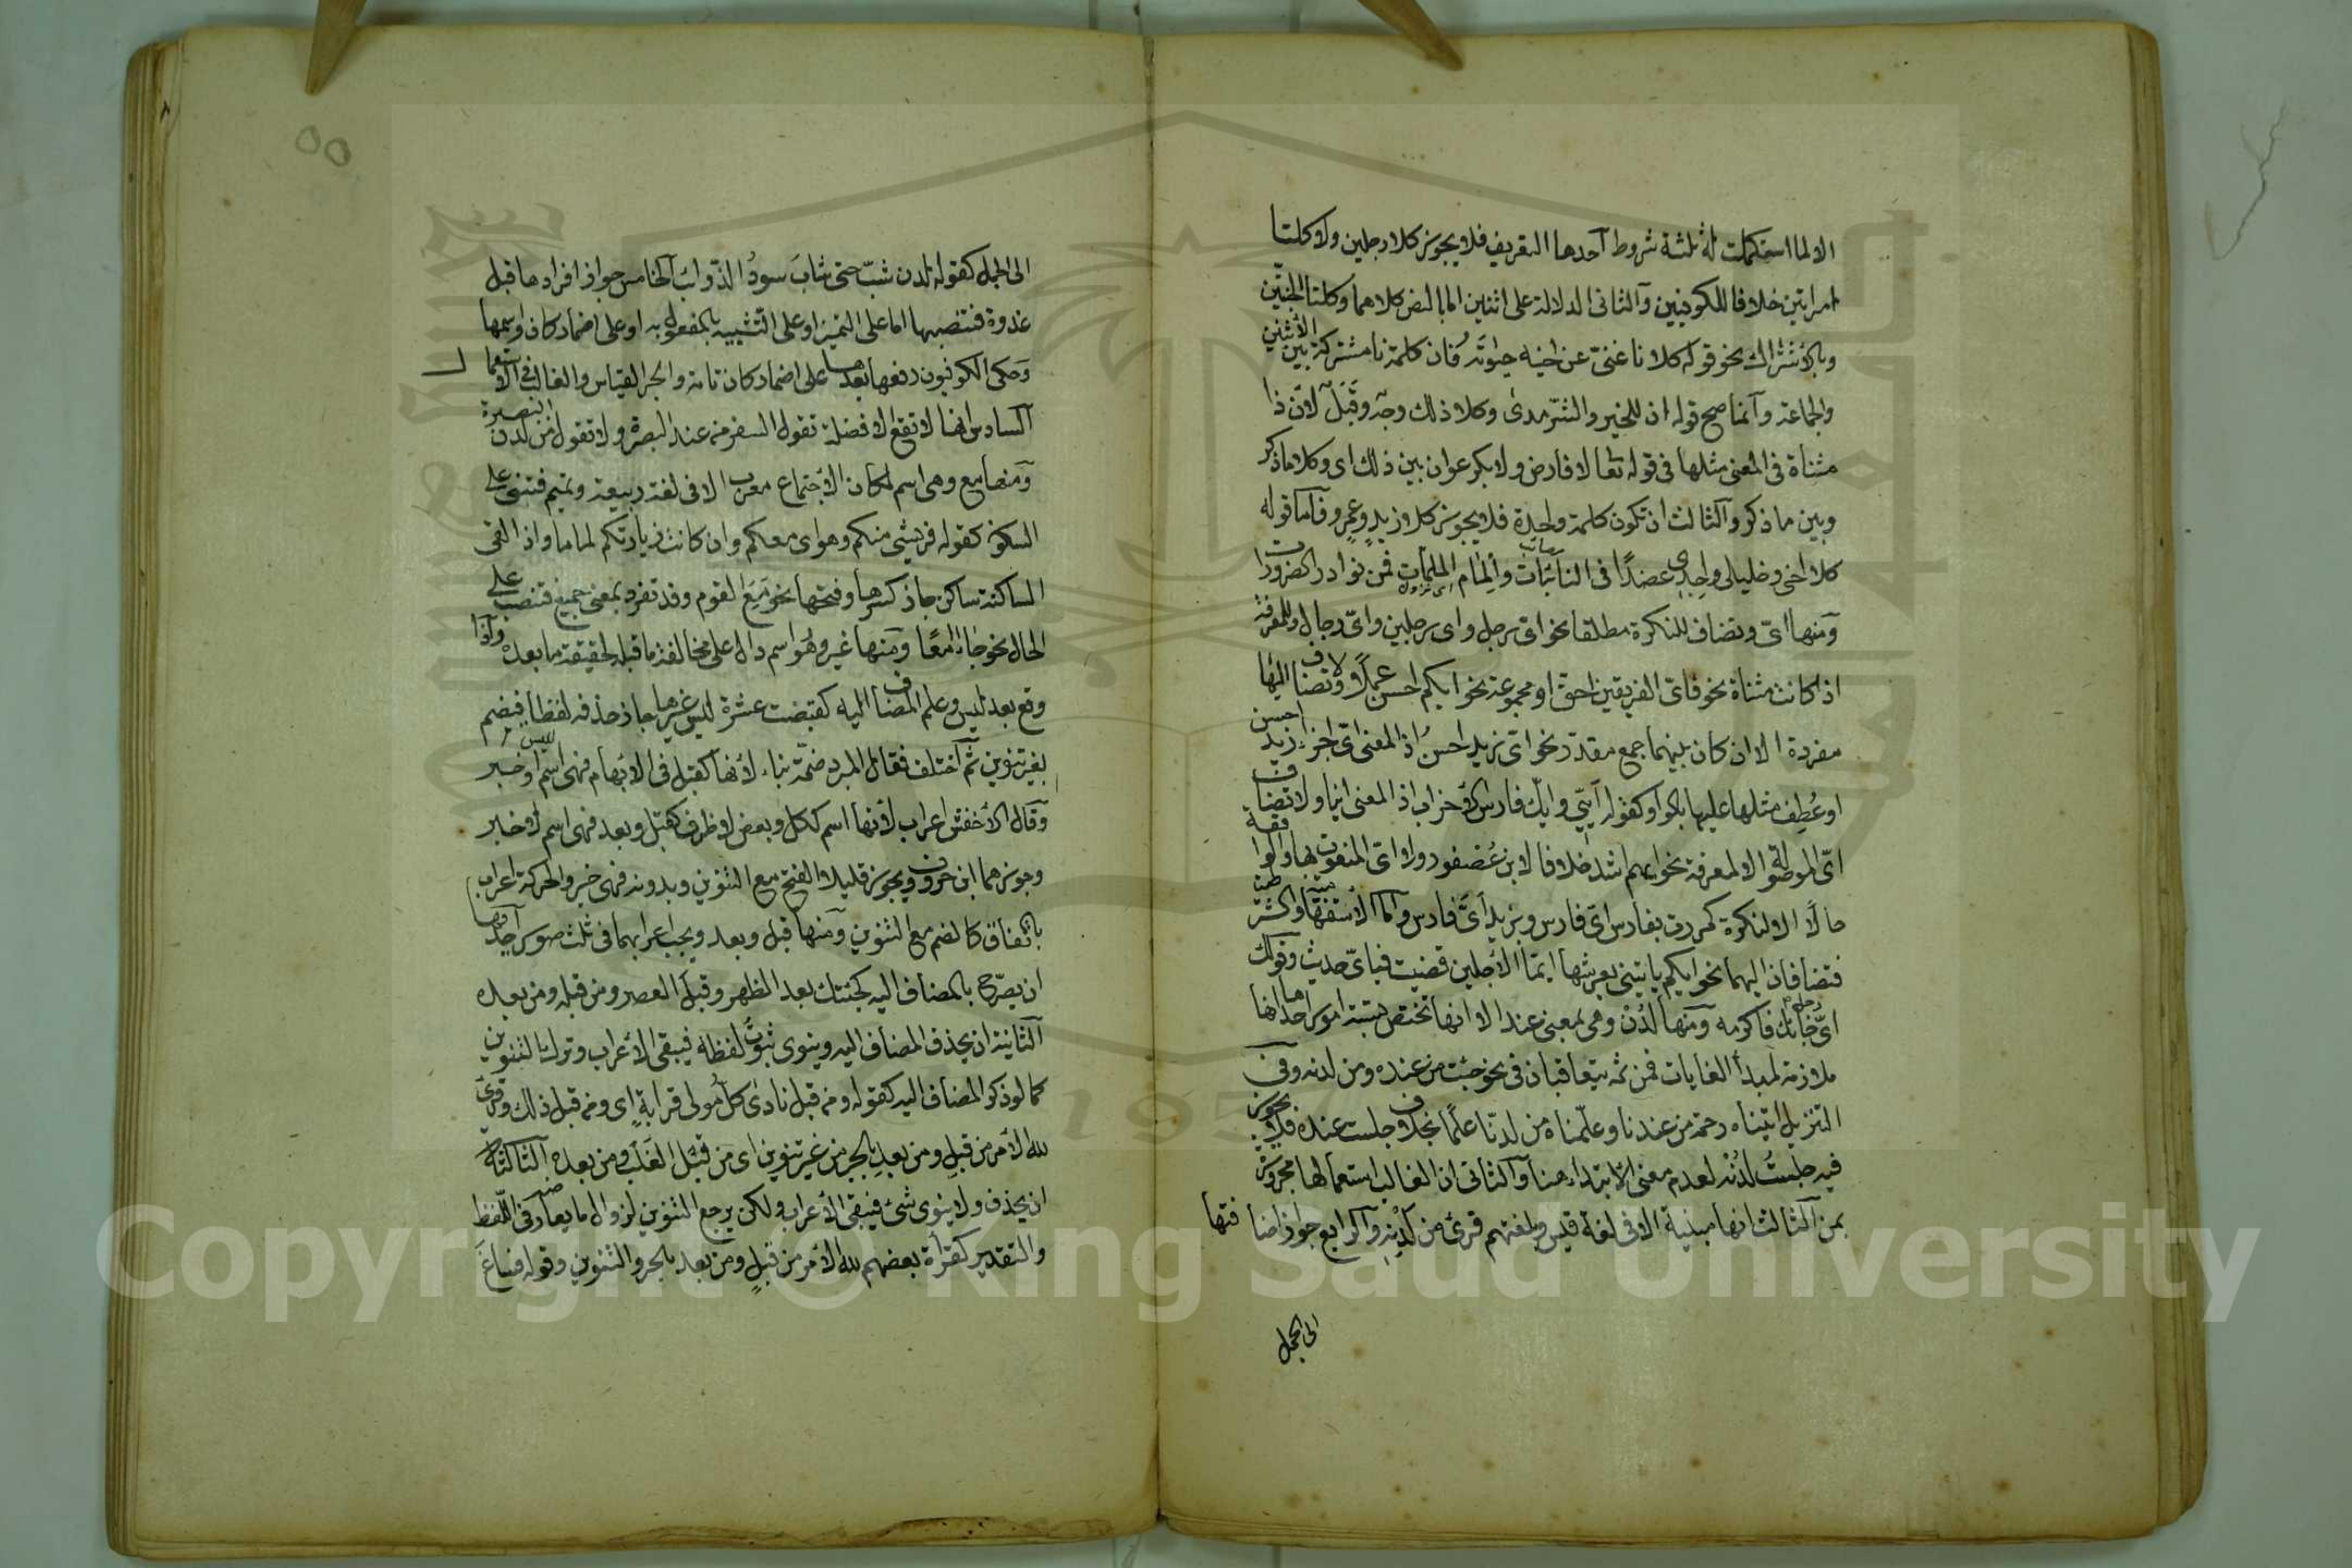 الا لما استكملت له ثلثة شروط آحدها التعريف فلا يجوز كلا رجلين ولا كلتا
امراتين خلافا للكوفيين وآلثانى الدلالة على اثنين اما بالنص كلاهما وكلتا الجنتين
وبالاشتراك نحو قوله كلانا غنىّ عن اخيه حيوته فان كلمة نا مشتركة بين الاثنين
والجماعة وآنما صح قوله ان للخير والشرّ مدى وكلا ذلك وجه وقبل لان ذا
مثناة فى المعنى مثلها فى قوله تعا لا فارض ولا بكر عوان بين ذلك اى وكلا ما ذكر
وبين ما ذكر وآلثالث ان تكون كلمة واحدة فلا يجوز كلا زيدٍ وعمرو فآما قوله
كلا اخى وخليلى واجدى عضدًا فى النائبات والمام الملمات فمن نوادر الضرورات
ومنها اىّ وتضاف للنكرة مطلقا نحو اى رجل واى رجلين واىّ رجال وللمعرفة
اذا كانت مثناة نحو فاىّ الفريقين احق او مجموعة نحو ايكم احسن عملًا ولا تضاف اليها
مفردة الا ان كان بينهما جمع مقدّر نحو اىّ زيد احسنُ اذ المعنى اىّ اجزاء زيد احسن
او عُطف مثلها عليها بالواو كقوله ايّى وايّك فارس الاحزاب اذ المعنى اينا ولا تضاف
اىّ الموصولة الا لمعرفة نحو ايهم اشد خلافا لابن عُصفور ولا اىّ المنعوت بها والواقعة
حالًا الا لنكرة كمررت بفارس اىّ فارس وبزيد اىَّ فارس وآما الاستفهامية والشرطية
فتضافان اليهما نحو ايكم ياتينى بعرشها ايّما الاجلين قضيت فباىّ حديث وقولك
اىّ رجل جائك فاكرمه ومنها لدُنْ وهى بمعنى عند الا انها تختص بستة امور احدها انها
ملازمة لمبدأ الغايات فمن ثم يتعاقبان فى نحو جئت من عنده ومن لدنه وفى
التنزيل اتيناه رحمة من عندنا وعلّمناه من لدنّا علمًا بخلاف جلست عنده فلا يجوز
فيه جلستُ لدُنْه لعدم معنى الابتداء هنا وآلثانى ان الغالب استعمالها مجرورة
بمن آلثالث انها مبنية الا فى لغة قيس وبلغتهم قرئ من لدْنِهِ وآلرابع جواز اضافتها
الى الجمل
الى الجمل كقوله لدن شبّ حتى شابَ سودُ الذوائب آلخامس جواز افراد ها قبل
غدوة فتنصبها اما على التميز او على التشبيه بالمفعول به او على اضمار كان واسمها
وَحكى الكوفيون رفعها بعدها على اضمار كان تامة والجر القياس والغالب فى الاستعمال
آلسادس انها لا تقع الا فضلة تقول السفر من عند البصرة ولا تقول من لدن البصرة
ومنها مع وهى اسم لمكان الاجتماع معرب الا فى لغة ربيعة وتميم فتبنى على
السكون كقوله فريشى منكم وهواى معكم وان كانت زيارتكم لماما واذا لقى
الساكنة ساكن جاز كسرها وفتحها نحو مَعَ القوم وقد تفرد بمعنى جميع فتنصب على
الحال نحو جاءا معًا ومنها غير وهُو اسم دال على مخالفة ما قبله لحقيقة ما بعده وآذا
وقع بعد ليس وعلم المضاف اليه كقبضت عشرة ليس غيرها جاز حذفه لفظا فيضم
بغير تنوين ثم آختلف فقال المبرد ضمّة بناء لانها كقبل فى الابهام فهى اسم ليس او خبر
وقال الاخفش اعراب لانها اسم ككل وبعض لا ظرف كقبل وبعد فهى اسم لا خبر
وجوزهما ابن خروف ويجوز قليلا الفتح مع التنوين وبدونه فهى خبر والحركة اعراب
باتفاق كالضم مع التنوين ومنها قبل وبعد ويجب اعرابهما فى ثلث صور آحديها
ان يصرّح بالمضاف اليه كجئتك بعد الظهر وقبل العصر ومن قبله ومن بعده
آلثانية ان يحذف المضاف اليه وينوى ثبوت لفظه فيبقى الاعراب وترك التنوين
كما لو ذكر المضاف اليه كقوله ومن قبل نادى كل مُولى قرابةٍ اى ومن قبل ذلك وقرئ
لله الامر من قبلِ ومن بعدِ بالجر من غير تنوين اى من قبل الغلب ومن بعده آلثالثة
ان يحذف ولا ينوى شئ فيبقى الاعراب ولكن يرجع التنوين لزوال ما يعارضه فى اللفظ
والتقدير كقرأة بعضهم لله الامر من قبلٍ ومن بعد بالجر والتنوين وقوله فساغَ
Copyright © King Saud University